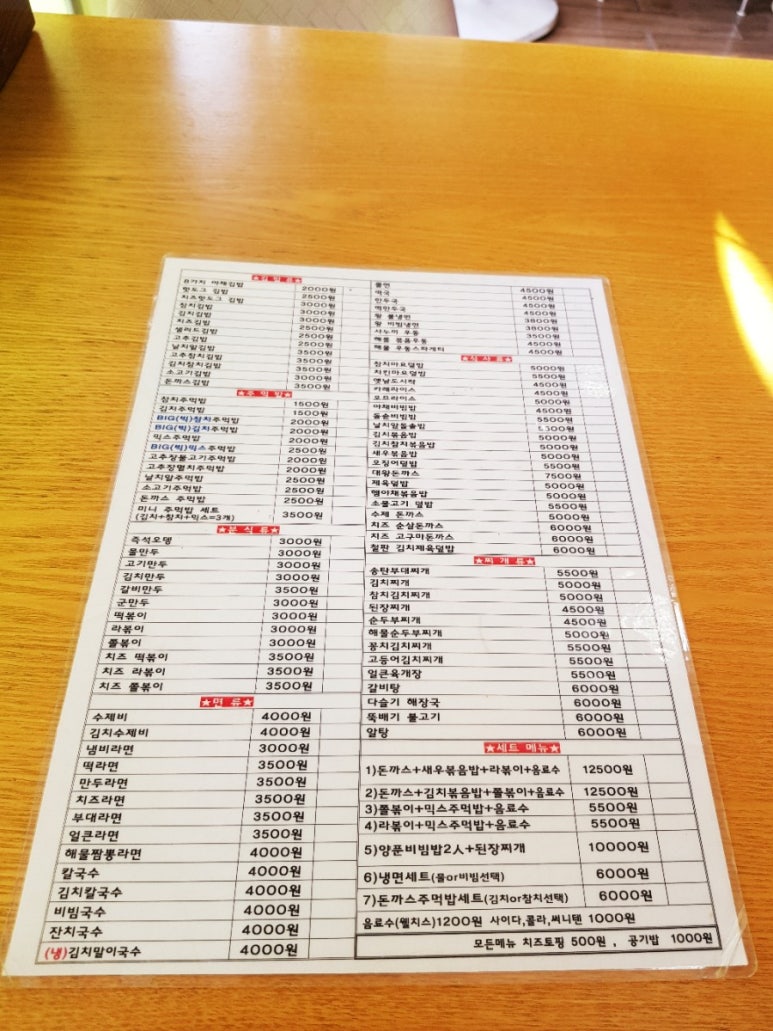 ★김밥 류★
8가지 야채김밥 2000원
핫도그 김밥 2500원
치즈핫도그 김밥 3000원
참치김밥 3000원
김치김밥 2500원
치즈김밥 2500원
샐러드김밥 2500원
고추김밥 3500원
날치알김밥 3500원
고추참치김밥 3500원
김치참치김밥 3500원
소고기김밥 3000원
돈까스김밥 3500원
★주먹 밥★
참치주먹밥 1500원
김치주먹밥 1500원
BIG(빅)참치주먹밥 2000원
BIG(빅)김치주먹밥 2000원
믹스주먹밥 2000원
BIG(빅)믹스주먹밥 2500원
고추장불고기주먹밥 2000원
고추장멸치주먹밥 2000원
날치알주먹밥 2500원
소고기주먹밥 2500원
돈까스 주먹밥 2500원
미니 주먹밥 세트
(김치+참치+믹스=3개) 3500원
★분 식 류★
즉석오뎅 3000원
물만두 3000원
고기만두 3000원
김치만두 3000원
갈비만두 3500원
군만두 3000원
떡볶이 3000원
라볶이 3000원
쫄볶이 3000원
치즈 떡볶이 3500원
치즈 라볶이 3500원
치즈 쫄볶이 3500원
★면 류★
수제비 4000원
김치수제비 4000원
냄비라면 3000원
떡라면 3500원
만두라면 3500원
치즈라면 3500원
부대라면 3500원
얼큰라면 3500원
해물짬뽕라면 4000원
칼국수 4000원
김치칼국수 4000원
비빔국수 4000원
잔치국수 4000원
(냉)김치말이국수 4000원
쫄면 4500원
떡국 4500원
만두국 4500원
떡만두국 4500원
물냉면
비빔냉면
우동 3500원
해물 볶음우동 4500원
해물 우동스파게티 4500원
★식 사 류★
참치마요덮밥 5000원
치킨마요덮밥 5500원
옛날도시락 4500원
카레라이스 4500원
오므라이스 5000원
야채비빔밥 4500원
돌솥비빔밥 5500원
날치알돌솥밥
김치볶음밥 5000원
김치참치볶음밥 5000원
새우볶음밥 5000원
오징어덮밥 5500원
대왕돈까스 7500원
제육덮밥 5000원
햄야채볶음밥 5000원
소불고기 덮밥 5500원
수제 돈까스 5000원
치즈 순살돈까스 6000원
치즈 고구마돈까스 6000원
철판 김치제육덮밥 6000원
★찌 개 류★
송탄부대찌개 5500원
김치찌개 5000원
참치김치찌개 5000원
된장찌개 4500원
순두부찌개 4500원
해물순두부찌개 5000원
꽁치김치찌개 5500원
고등어김치찌개 5500원
얼큰육개장 5500원
갈비탕 6000원
다슬기 해장국 6000원
뚝배기 불고기 6000원
알탕 6000원
★세트 메뉴★
1)돈까스+새우볶음밥+라볶이+음료수 12500원
2)돈까스+김치볶음밥+쫄볶이+음료수 12500원
3)쫄볶이+믹스주먹밥+음료수 5500원
4)라볶이+믹스주먹밥+음료수 5500원
5)양푼비빔밥2人+된장찌개 10000원
6)냉면세트(물or비빔선택) 6000원
7)돈까스주먹밥세트(김치or참치선택) 6000원
음료수(웰치스)1200원 사이다,콜라,써니텐 1000원
모든메뉴 치즈토핑 500원 , 공기밥 1000원